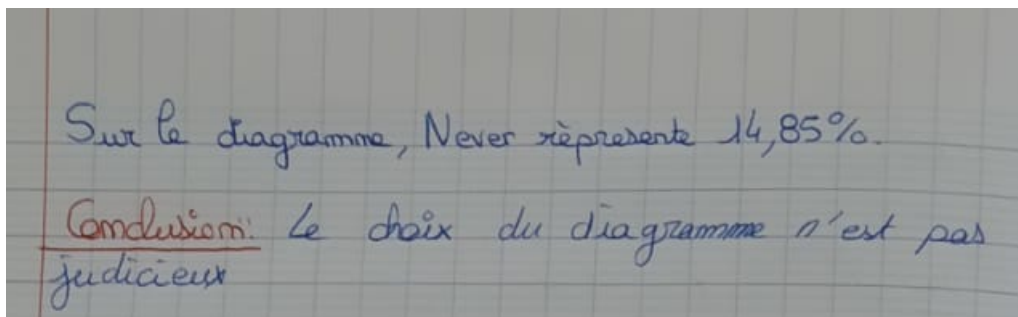 Sur le diagramme, Never rèpresente 14,85%.
Conclusion: Le choix du diagramme n'est pas
judicieux